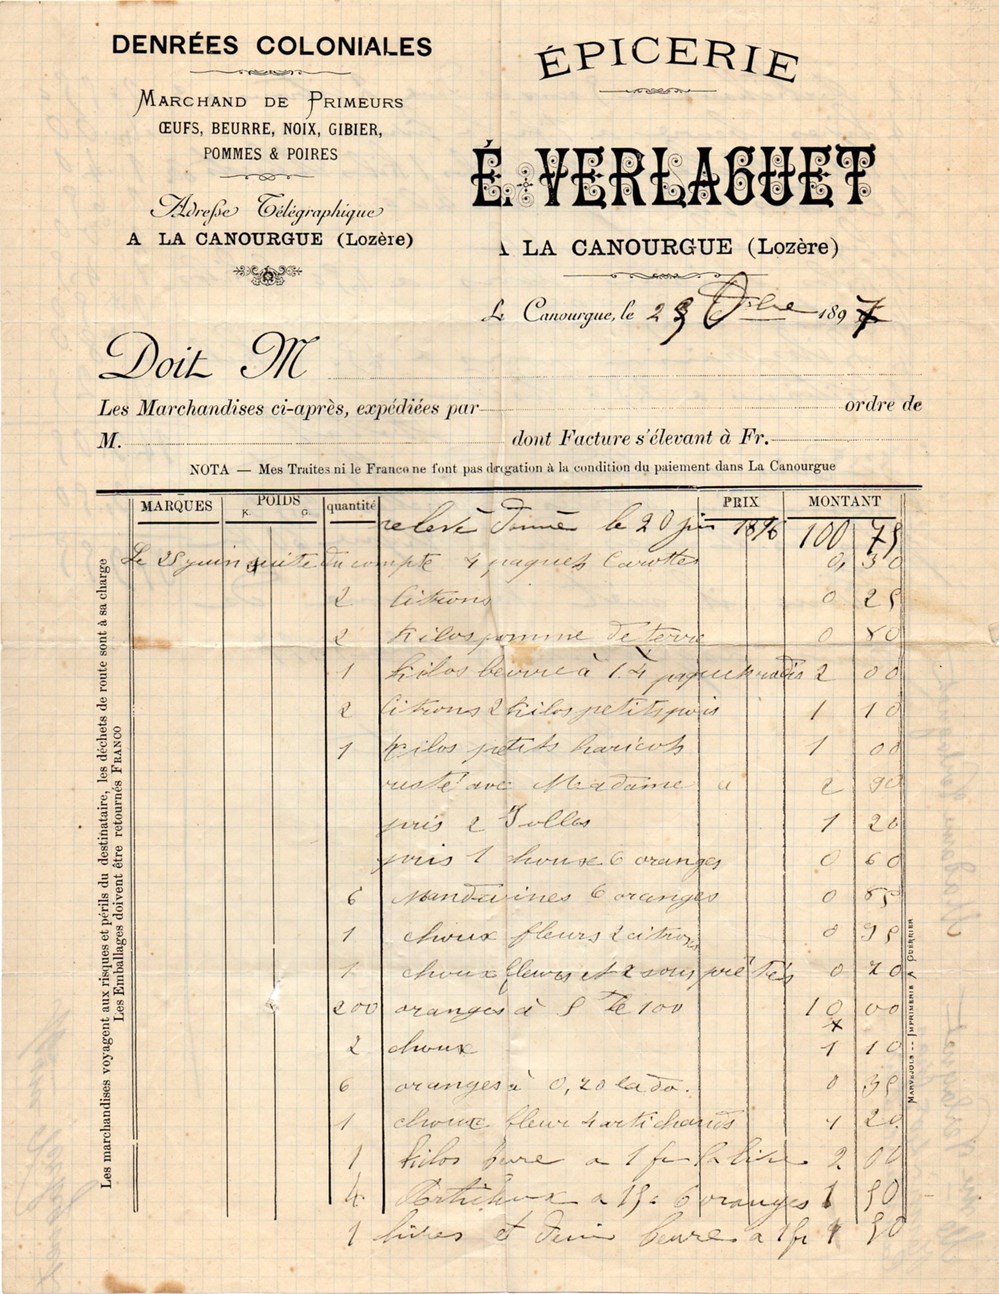 DENRÉES COLONIALES
MARCHAND DE PRIMEURS
ŒUFS, BEURRE, NOIX, GIBIER,
POMMES & POIRES
Adresse Télégraphique
A LA CANOURGUE (Lozère)
ÉPICERIE
É. VERLAGUET
A LA CANOURGUE (Lozère)
La Canourgue, le 23 8bre 1897
Doit M
Les Marchandises ci-après, expédiées par ordre de
M. dont Facture s'élevant à Fr.
NOTA — Mes Traites ni le Franco ne font pas drogation à la condition du paiement dans La Canourgue
MARQUES POIDS K. G. quantité PRIX MONTANT
relevé donné le 20 juin 1896 100 75
Le 25 juin suite du compte 4 paquets Carottes 0, 30
2 citrons 0 25
2 kilos pomme de terre 0 80
1 kilos beurre à 1. 4 paquets radis 2 00
2 citrons 2 kilos petits pois 1 10
1 kilos petits haricots 1 00
resté avec Madame a 2 90
pris 2 Solles 1 20
pris 1 choux 6 oranges 0 60
6 Mandarines 6 oranges 0 85
1 choux fleurs 2 citrons 0 95
1 choux fleurs et 2 sous prêtés 0 70
200 oranges à 5 le 100 10 00
2 choux 1 10
6 oranges à 0,20 la do. 0 35
1 choux fleur 4 artichauts 1 20
1 kilos bure a 1 fr la livre 2 00
4 a 15c 6 oranges 1 50
1 livres et demi beurre a 1 fr 1 50
Les marchandises voyagent aux risques et périls du destinataire, les déchets de route sont à sa charge
Les Emballages doivent être retournés FRANCO
MARVEJOLS -- IMPRIMERIE A GUERRIER